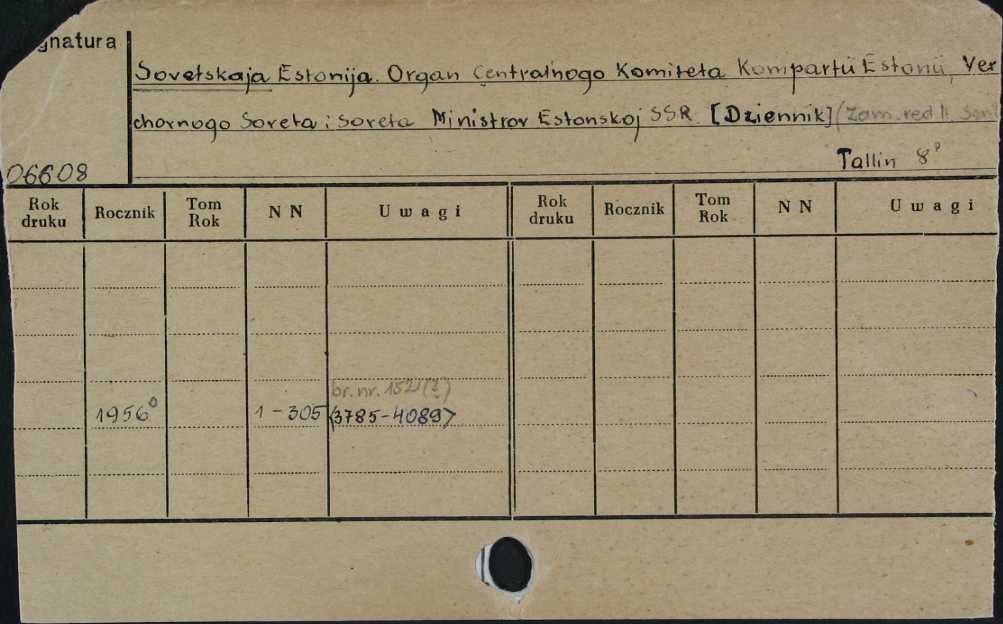 gnatura
Sovetskaja Estonija. Organ Centralnogo Komiteta Kompartii Estonii, Ver
chovnogo Soveta i Soveta Ministrov Estonskoj SSR. [Dziennik] (Zam. red.
Tallin 8°
06608
Rok druku Rocznik Tom Rok N N Uwagi Rok druku Rocznik Tom Rok N N Uwagi
br. nr.
1956° 1-305 (3785-4089)